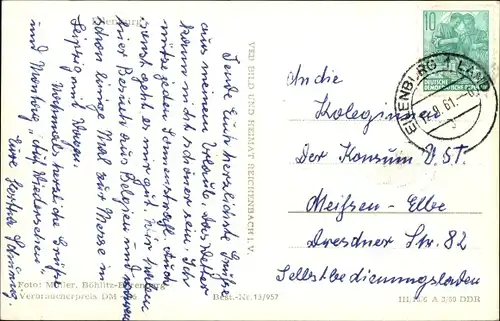 Eilenburg
Sende Euch herzlichste Grüße
aus meinem Urlaub. Das Wetter
kann nicht schöner sein. Ich
nütze jeden Sonnenstrahl. Auch
sonst geht es mir gut. Wir haben
hier Besuch aus Belgien und waren
schon einige Mal zur Messe in
Leipzig mit Wagen.
Nochmals herzliche Grüße
und Montag "Auf Wiedersehen"
Eure Hertha
VEB BILD UND HEIMAT REICHENBACH I. V.
Foto: Müller, Böhlitz-Ehrenberg
Verbraucherpreis DM
Best.-Nr. 15/957
10
DEUTSCHE
DEMOKRATISCHE REPUBLIK
EILENBURG 1 LAND
9.61
An die
Kolleginnen
Der Konsum V.St.
Meißen-Elbe
Dresdner Str. 82
Selbstbedienungsladen
A 3/60 DDR